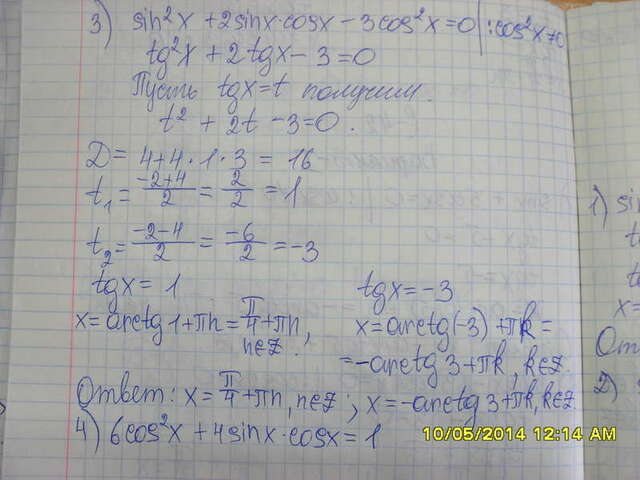 3) sin²x + 2sinx·cosx - 3cos²x = 0 | :cos²x≠0
tg²x + 2tgx - 3 = 0
Пусть tgx = t получим.
t² + 2t - 3 = 0.
D = 4+4·1·3 = 16
t₁ = (-2+4)/2 = 2/2 = 1
t₂ = (-2-4)/2 = -6/2 = -3
tgx = 1
x = arctg1 + πn = π/4 + πn,
n∈z.
tgx = -3
x = arctg(-3) + πk =
= -arctg3 + πk, k∈z.
Ответ: x = π/4 + πn, n∈z; x = -arctg3 + πk, k∈z.
4) 6cos²x + 4sinx·cosx = 1
1) sin
t
t
x =
От
2)
10/05/2014 12:14 AM